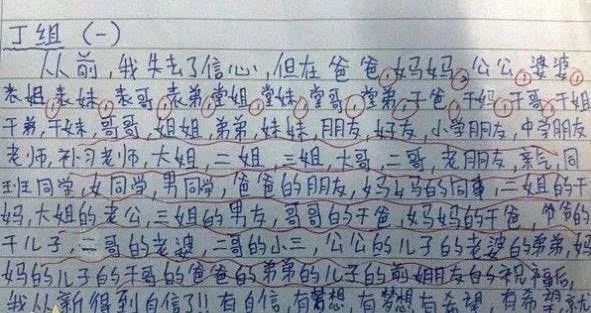 丁组 (一)
从前,我失去了信心,但在爸爸,妈妈,公公,婆婆
表姐,表妹,表哥,表弟,堂姐,堂妹,堂哥,堂弟,干爸,干妈,干哥,干姐
干弟,干妹,哥哥,姐姐,弟弟,妹妹,朋友,好友,小学朋友,中学朋友
老师,补习老师,大姐,二姐,三姐,大哥,二哥,老朋友,亲戚,同
班同学,女同学,男同学,爸爸的朋友,妈妈的同事,二姐的干
妈,大姐的老公,三姐的男友,哥哥的干爸,妈妈的干爸,爷爷的
干儿子,二哥的老婆,二哥的小三,公公的儿子的老婆的弟弟,妈
妈的儿子的干哥的爸爸的弟弟的儿子的前朋友的祝福后,
我从新得到自信了!!有自信,有梦想,有梦想有希望,有希望就